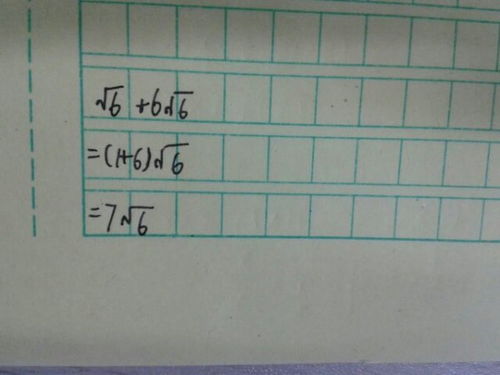 √6 +6√6
=(1+6)√6
=7√6